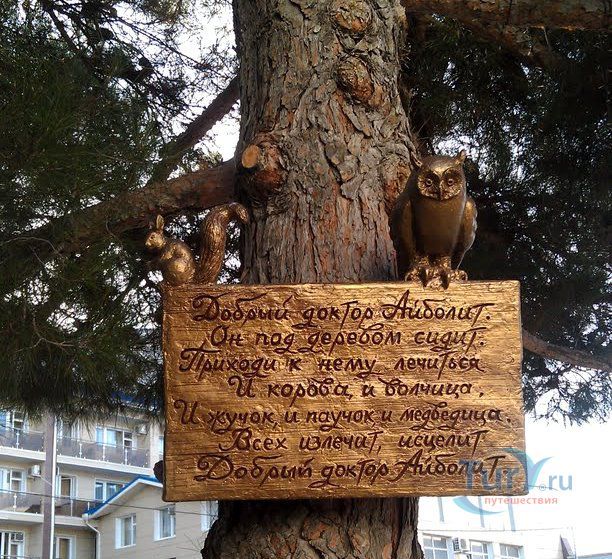 Добрый доктор Айболит.
Он под деревом сидит.
Приходи к нему лечиться
И корова, и волчица,
И жучок, и паучок и медведица.
Всех излечит, исцелит
Добрый доктор Айболит.
TurY.ru
путешествия